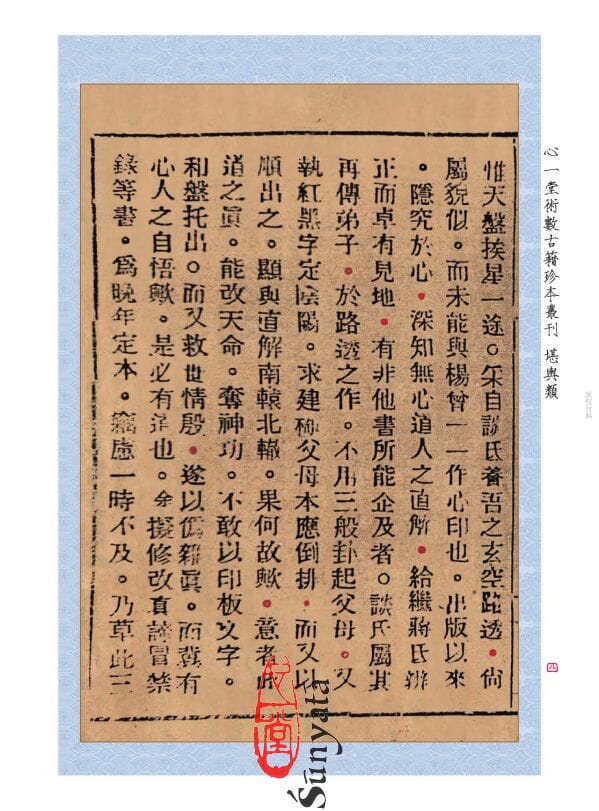 惟天盤挨星一途。采自談氏養吾之玄空路透。尙
屬貌似。而未能與楊曾一一作心印也。出版以來
。隱究於心。深知無心道人之直解。給繼蔣氏辨
正而卓有見地。有非他書所能企及者。談氏屬其
再傳弟子。於路透之作。不用三般卦起父母。又
執紅黑字定陰陽。求建 父母本應倒排。而又以
順出之。顯與直解南轅北轍。果何故歟。意者
道之眞。能改天命。奪神功。不敢以印板文字。
和盤托出。而又救世情殷。遂以僞雜眞。而冀有
心人之自悟歟。是必有 也。余擬修改直 冒禁
錄等書。爲晚年定本。竊慮一時不及。乃草此三
心一堂術數古籍珍本叢刊 堪輿類
四
心一堂
Śūnyatā